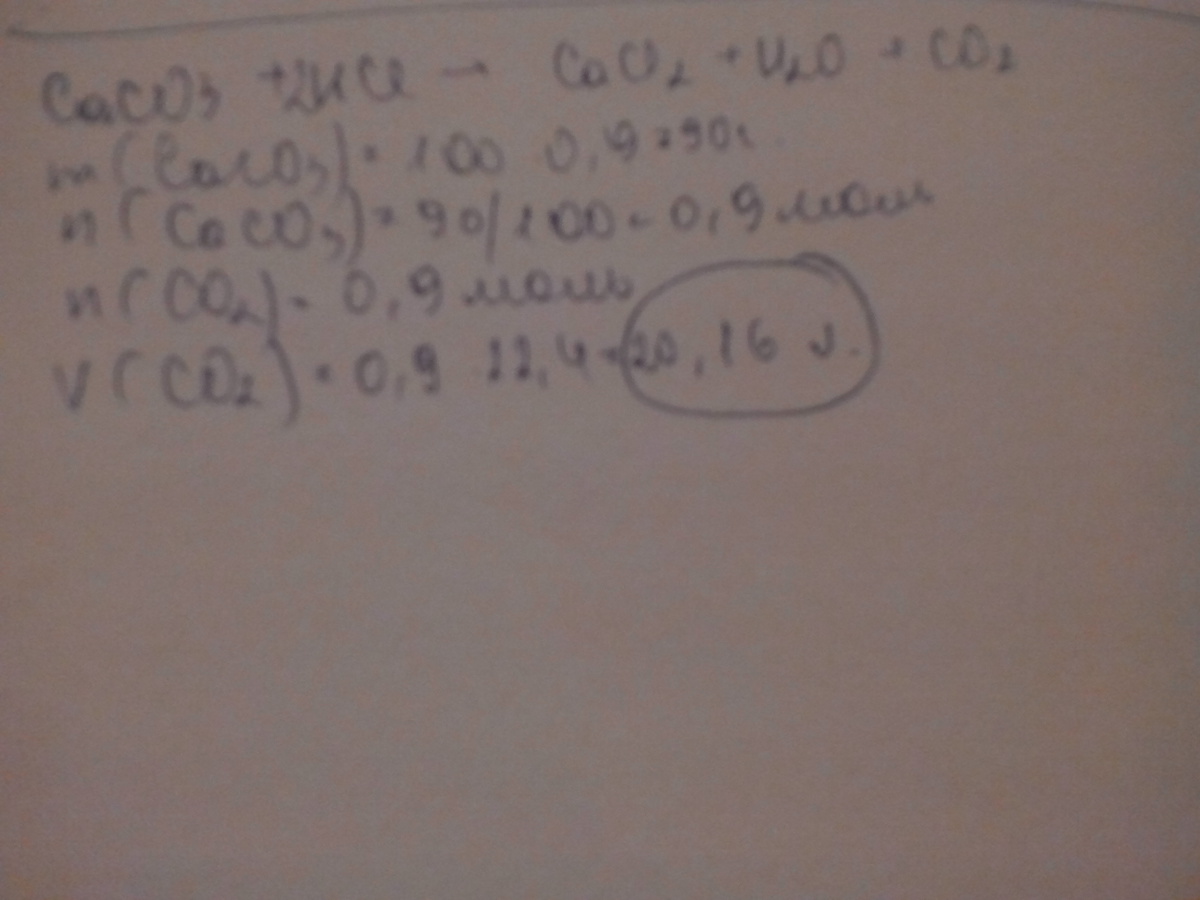 CaCO3 +2HCl → CaCl2 + H2O + CO2
m(CaCO3) = 100 0,9 = 90г.
n(CaCO3) = 90/100 = 0,9 моль
n(CO2) = 0,9 моль
V(CO2) = 0,9 22,4 = 20,16 л.